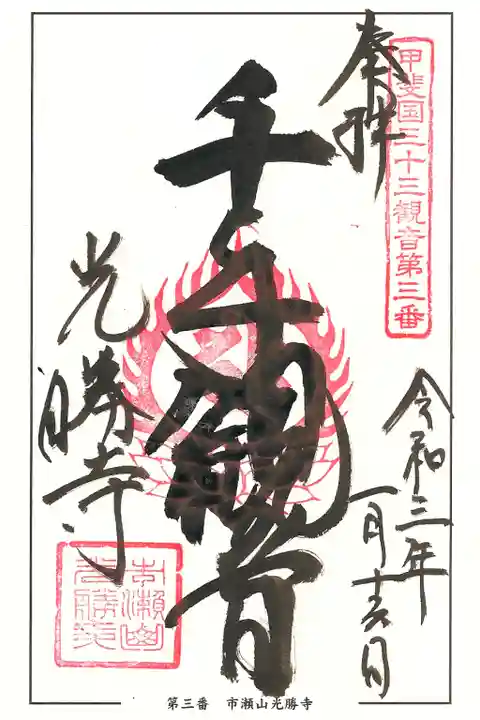 甲斐国三十三観音第三番
奉拝
令和三年
一月 日
千手観音
光勝寺
市瀬山
光勝寺
第三番　市瀬山光勝寺